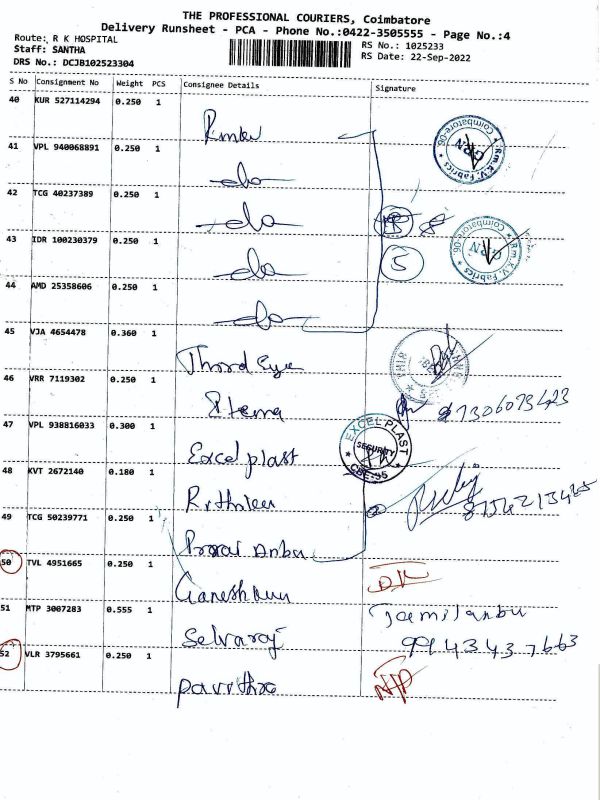 THE PROFESSIONAL COURIERS, Coimbatore
Delivery Runsheet - PCA - Phone No.:0422-3505555 - Page No.:4
Route: R K HOSPITAL
Staff: SANTHA
DRS No.: DCJB102523304
RS No.: 1025233
RS Date: 22-Sep-2022
S No Consignment No Weight PCS Consignee Details Signature
40 KUR 527114294 0.250 1
41 VPL 940068891 0.250 1 -do-
42 TCG 40237389 0.250 1 -do-
43 IDR 100230379 0.250 1 -do-
44 AMD 25358606 0.250 1 -do-
5
Rm.K.V. Fabrics * Coimbatore-06. *
GRN
Rm.K.V. Fabrics * Coimbatore-06. *
GRN
45 VJA 4654478 0.360 1 Third Eye
46 VRR 7119302 0.250 1
47 VPL 938816033 0.300 1 Excel plast
EXCEL PLAST
SECURITY
CBE-55
48 KVT 2672140 0.180 1
49 TCG 50239771 0.250 1
50 TVL 4951665 0.250 1
51 MTP 3007283 0.555 1 Selvaraj Tamilanbu
9943437663
52 VLR 3795661 0.250 1 Pavithra